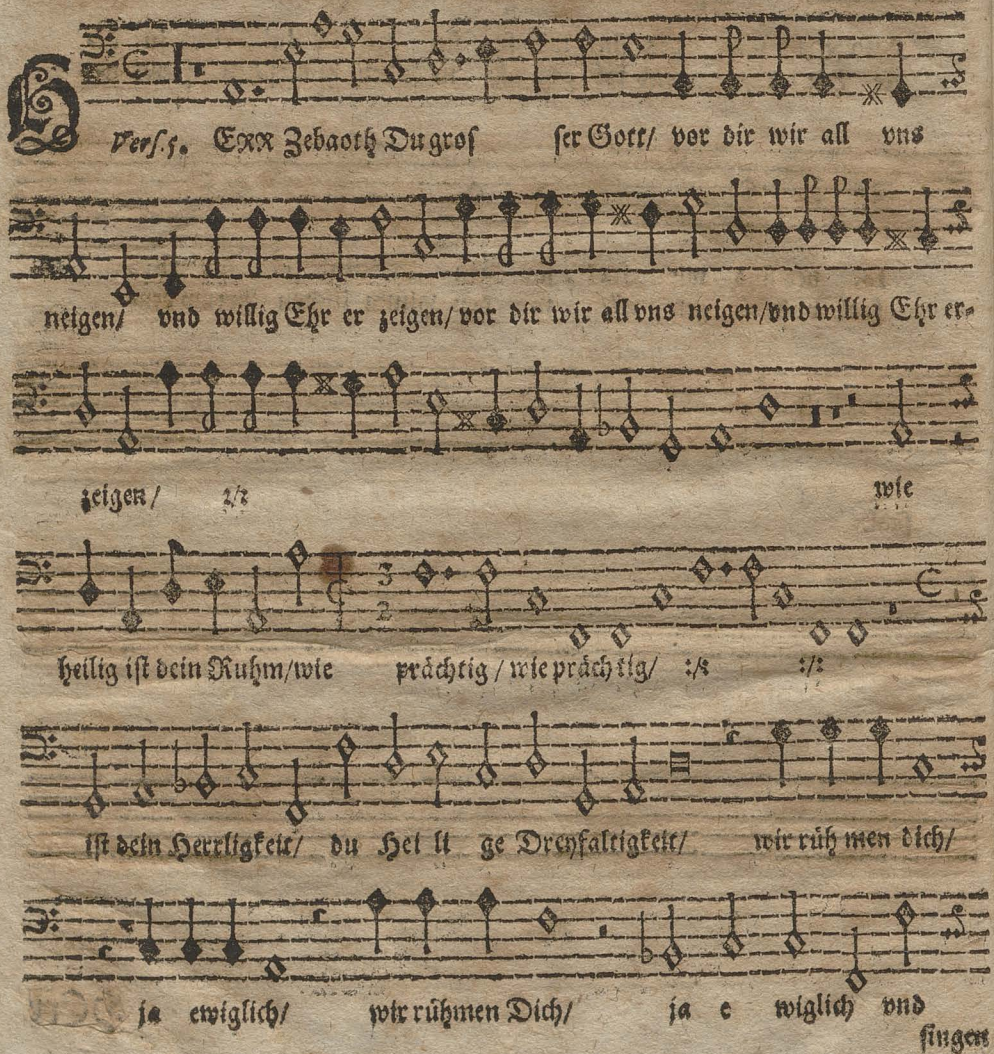 H Vers. 5. ERR Zebaoth Du gros ser Gott/ vor dir wir all vns
neigen/ vnd willig Ehr er zeigen/ vor dir wir all vns neigen/vnd willig Ehr er-
zeigen/ :/: wie
3
2
heilig ist dein Ruhm/wie prächtig / wie prächtig/ :/: :/:
ist dein Herrligkeit/ du Hei li ge Dreyfaltigkeit/ wir rüh men dich/
ja ewiglich/ wir rühmen Dich/ ja e wiglich vnd
singen